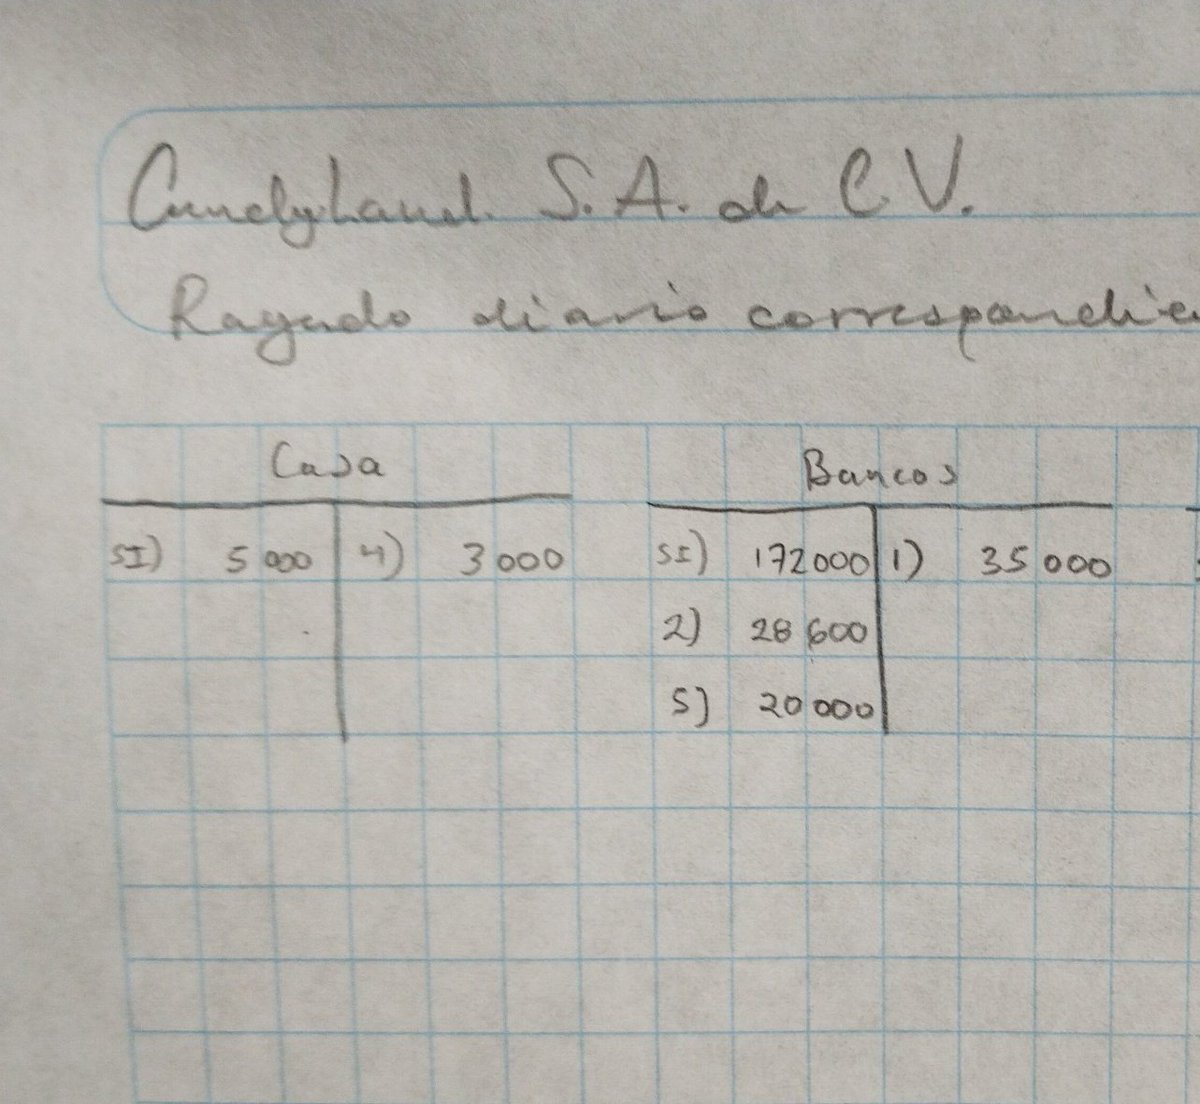 CandyLand. S.A. de C.V.
Rayado diario correspondie
Casa
SI) 5 000 4) 3 000
Bancos
SI) 172 000 1) 35 000
2) 28 600
5) 20 000